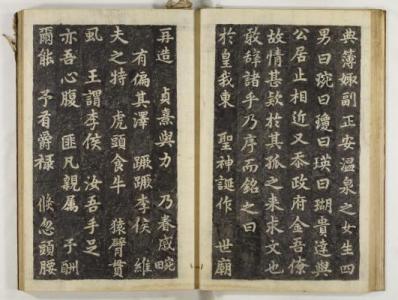 典簿娵副正安溫泉之女生四
男曰琬曰瓊曰瑛曰瑚貴達與
公居止相近又忝政府金吾僚
故情甚欵於其孤之来求文也
敢辞諸乎乃序而銘之曰
於皇我東 聖神誕作 世廟
再造 貞熹與力 乃眷戚畹
有偏其澤 蹶蹶李侯 維
夫之特 虎頭食牛 猿臂貫
虱 王謂李侯 汝吾手足
亦吾心腹 匪凡親属 予酬
爾能 予肴爵祿 倐忽頭腰